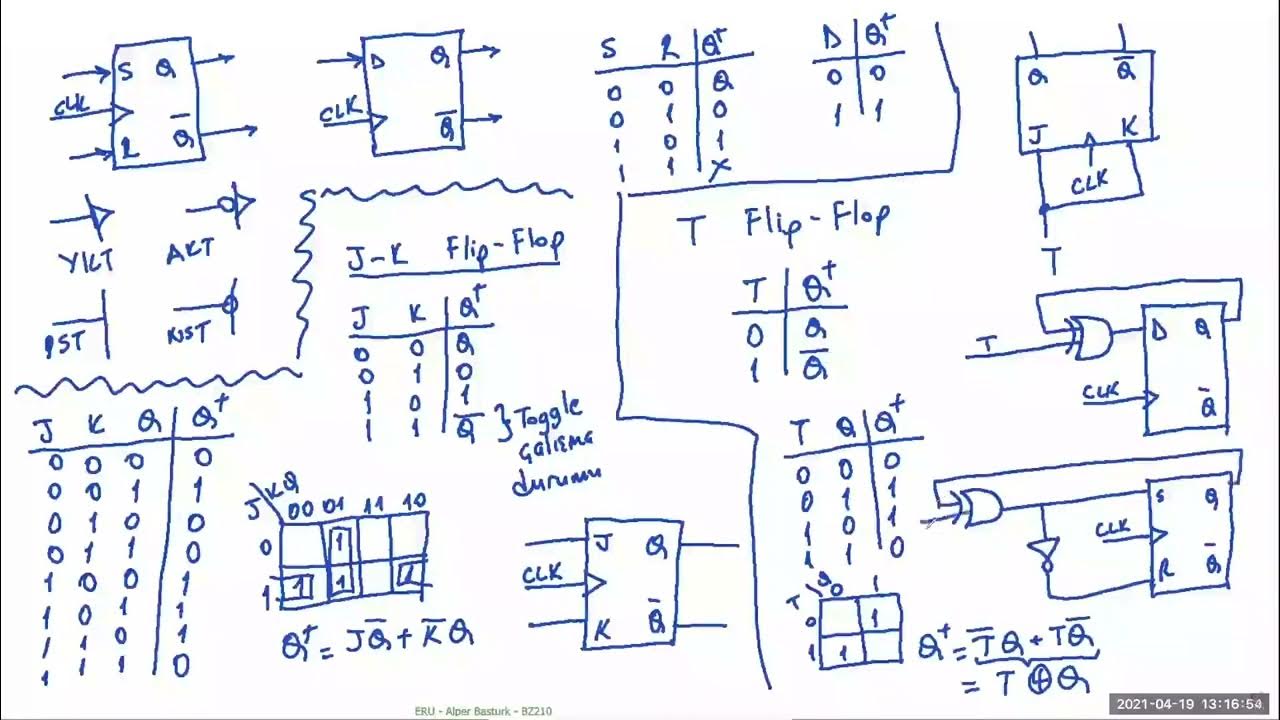 S Q
CLK
R Q̅
D Q
CLK
Q̅
S R Q⁺
0 0 Q
0 1 0
1 0 1
1 1 X
D Q⁺
0 0
1 1
Q Q̅
J K
CLK
T
YKT AKT
PST NST
J-K Flip-Flop
J K Q⁺
0 0 Q
0 1 0
1 0 1
1 1 Q̅
} Toggle
çalışma
durumu
T Flip-Flop
T Q⁺
0 Q
1 Q̅
T D Q
CLK Q̅
J K Q Q⁺
0 0 0 0
0 0 1 1
0 1 0 0
0 1 1 0
1 0 0 1
1 0 1 1
1 1 0 1
1 1 1 0
J KQ
00 01 11 10
0 1
1 1 1 1
Q⁺ = JQ̅ + K̅Q
J Q
CLK
K Q̅
T Q Q⁺
0 0 0
0 1 1
1 0 1
1 1 0
T Q
0 1
0 1
1 1
S Q
CLK
R Q̅
Q⁺ = T̅Q + TQ̅
= T ⊕ Q
ERU - Alper Basturk - BZ210
2021-04-19 13:16:54